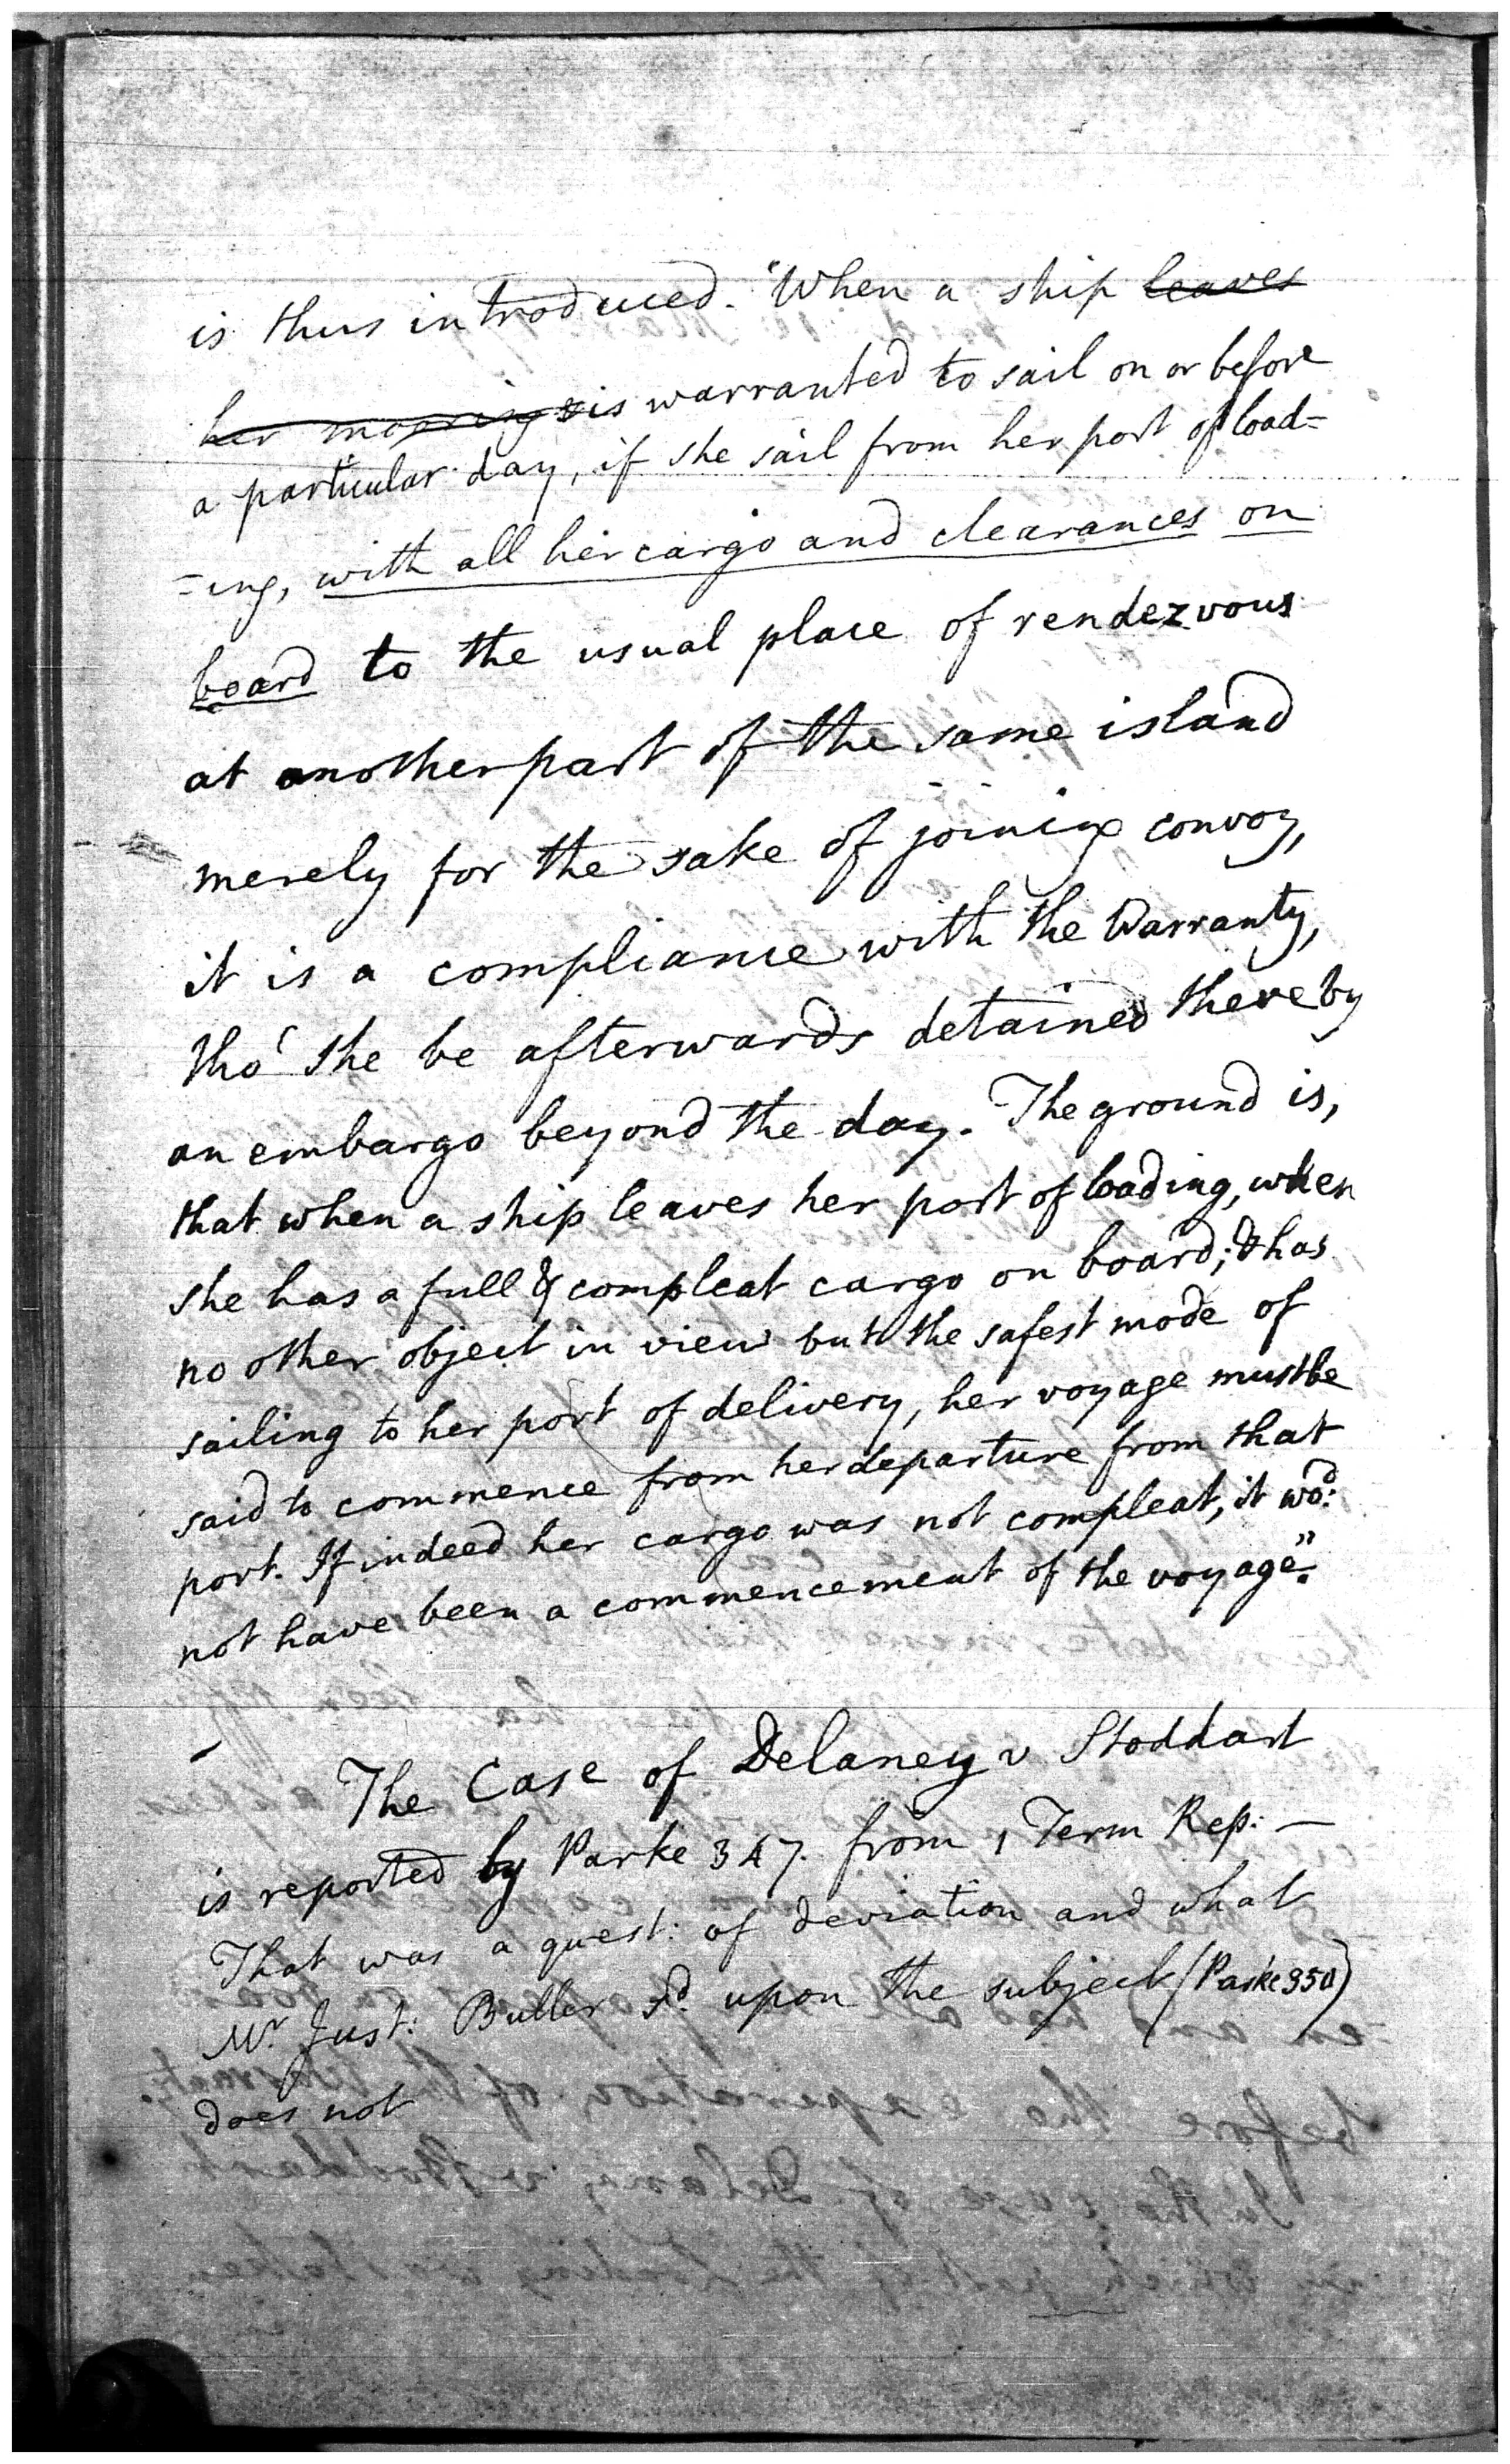 is thus introduced. "When a ship leaves
her moorings is warranted to sail on or before
a particular day, if she sail from her port of load=
=ing, with all her cargo and clearances on
board to the usual place of rendezvous
at another part of the same island
merely for the sake of joining convoy,
it is a compliance with the Warranty,
tho' she be afterwards detained there by
an embargo beyond the day. The ground is,
that when a ship leaves her port of loading, when
she has a full & compleat cargo on board; & has
no other object in view but the safest mode of
sailing to her port of delivery, her voyage must be
said to commence from her departure from that
port. If indeed her cargo was not compleat, it wod:
not have been a commencement of the voyage".
The Case of Delaney v Stoddart
is reported by Parke 347. from 1 Term Rep: —
That was a quest: of deviation and what
Mr Just: Buller sd. upon the subject (Parke 350)
does not